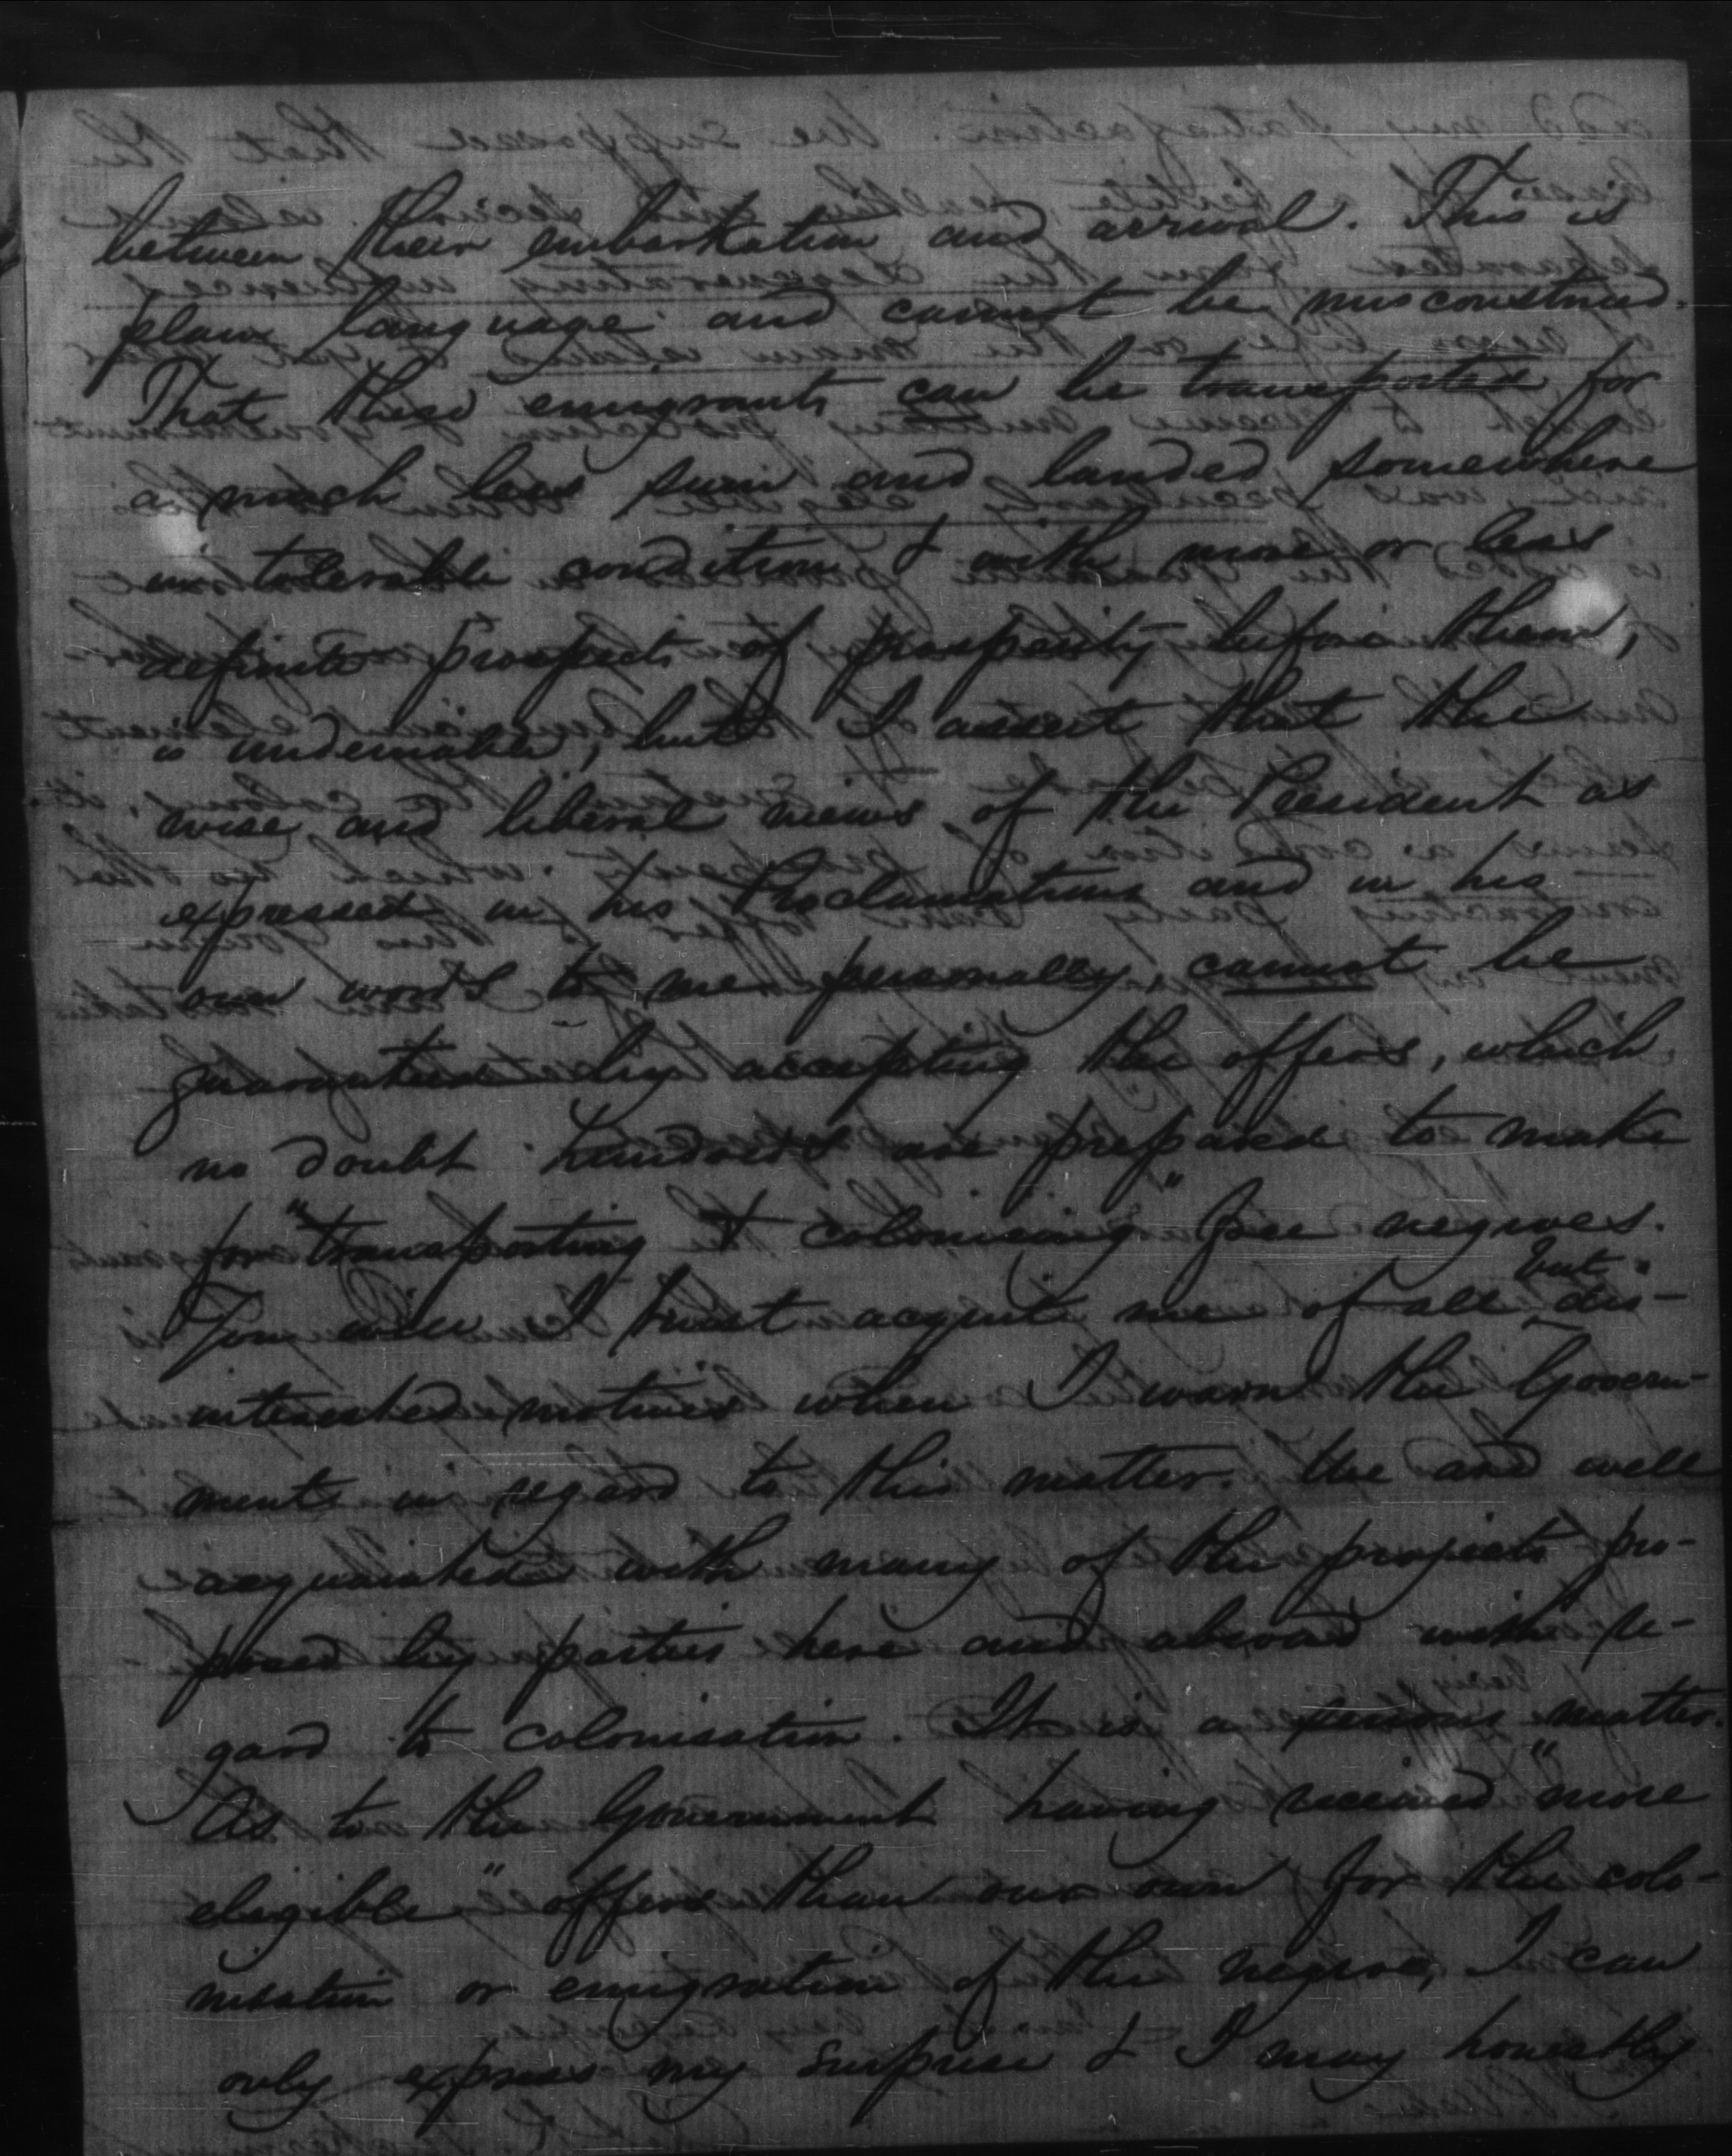 between their embarkation and arrival. This is
plain language and cannot be misconstrued.
That these emigrants can be transported for
a much less sum and landed somewhere
in tolerable condition & with more or less
definite prospects of prosperity before them,
is undeniable, but I assert that the
wise and liberal views of the President as
expressed in his Proclamations and in his
own words to me personally, cannot be
guaranteed by accepting the offers, which
no doubt hundreds are prepared to make
for "transporting & colonising" free negroes.
You will I trust acquit me of all but dis-
interested motives when I warn the Govern-
ment in regard to this matter. We are well
acquainted with many of the projects pro-
posed by parties here and abroad with re-
gard to colonisation. It is a serious matter.
As to the Government having received "more
eligible" offers than our own for the colo-
nisation or emigration of the negroe, I can
only express my surprise & I may honestly